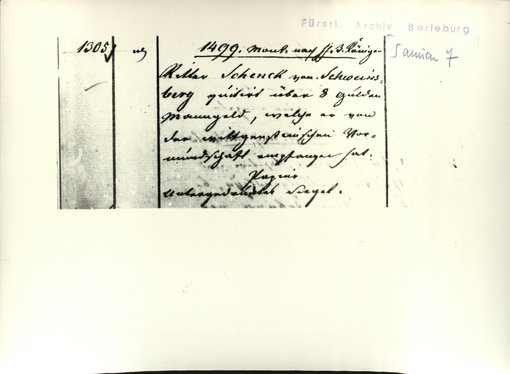 Fürstl. Archiv Berleburg
1305
1499. Mont. nach H. 3. Könige
Januar 7
Ritter Schenck von Schweins-
berg quitirt über 8 Gulden
Manngeld, welche er von
der wittgensteinischen Vor-
mundschaft empfangen hat.
Papier
Untergedrucktes Siegel.